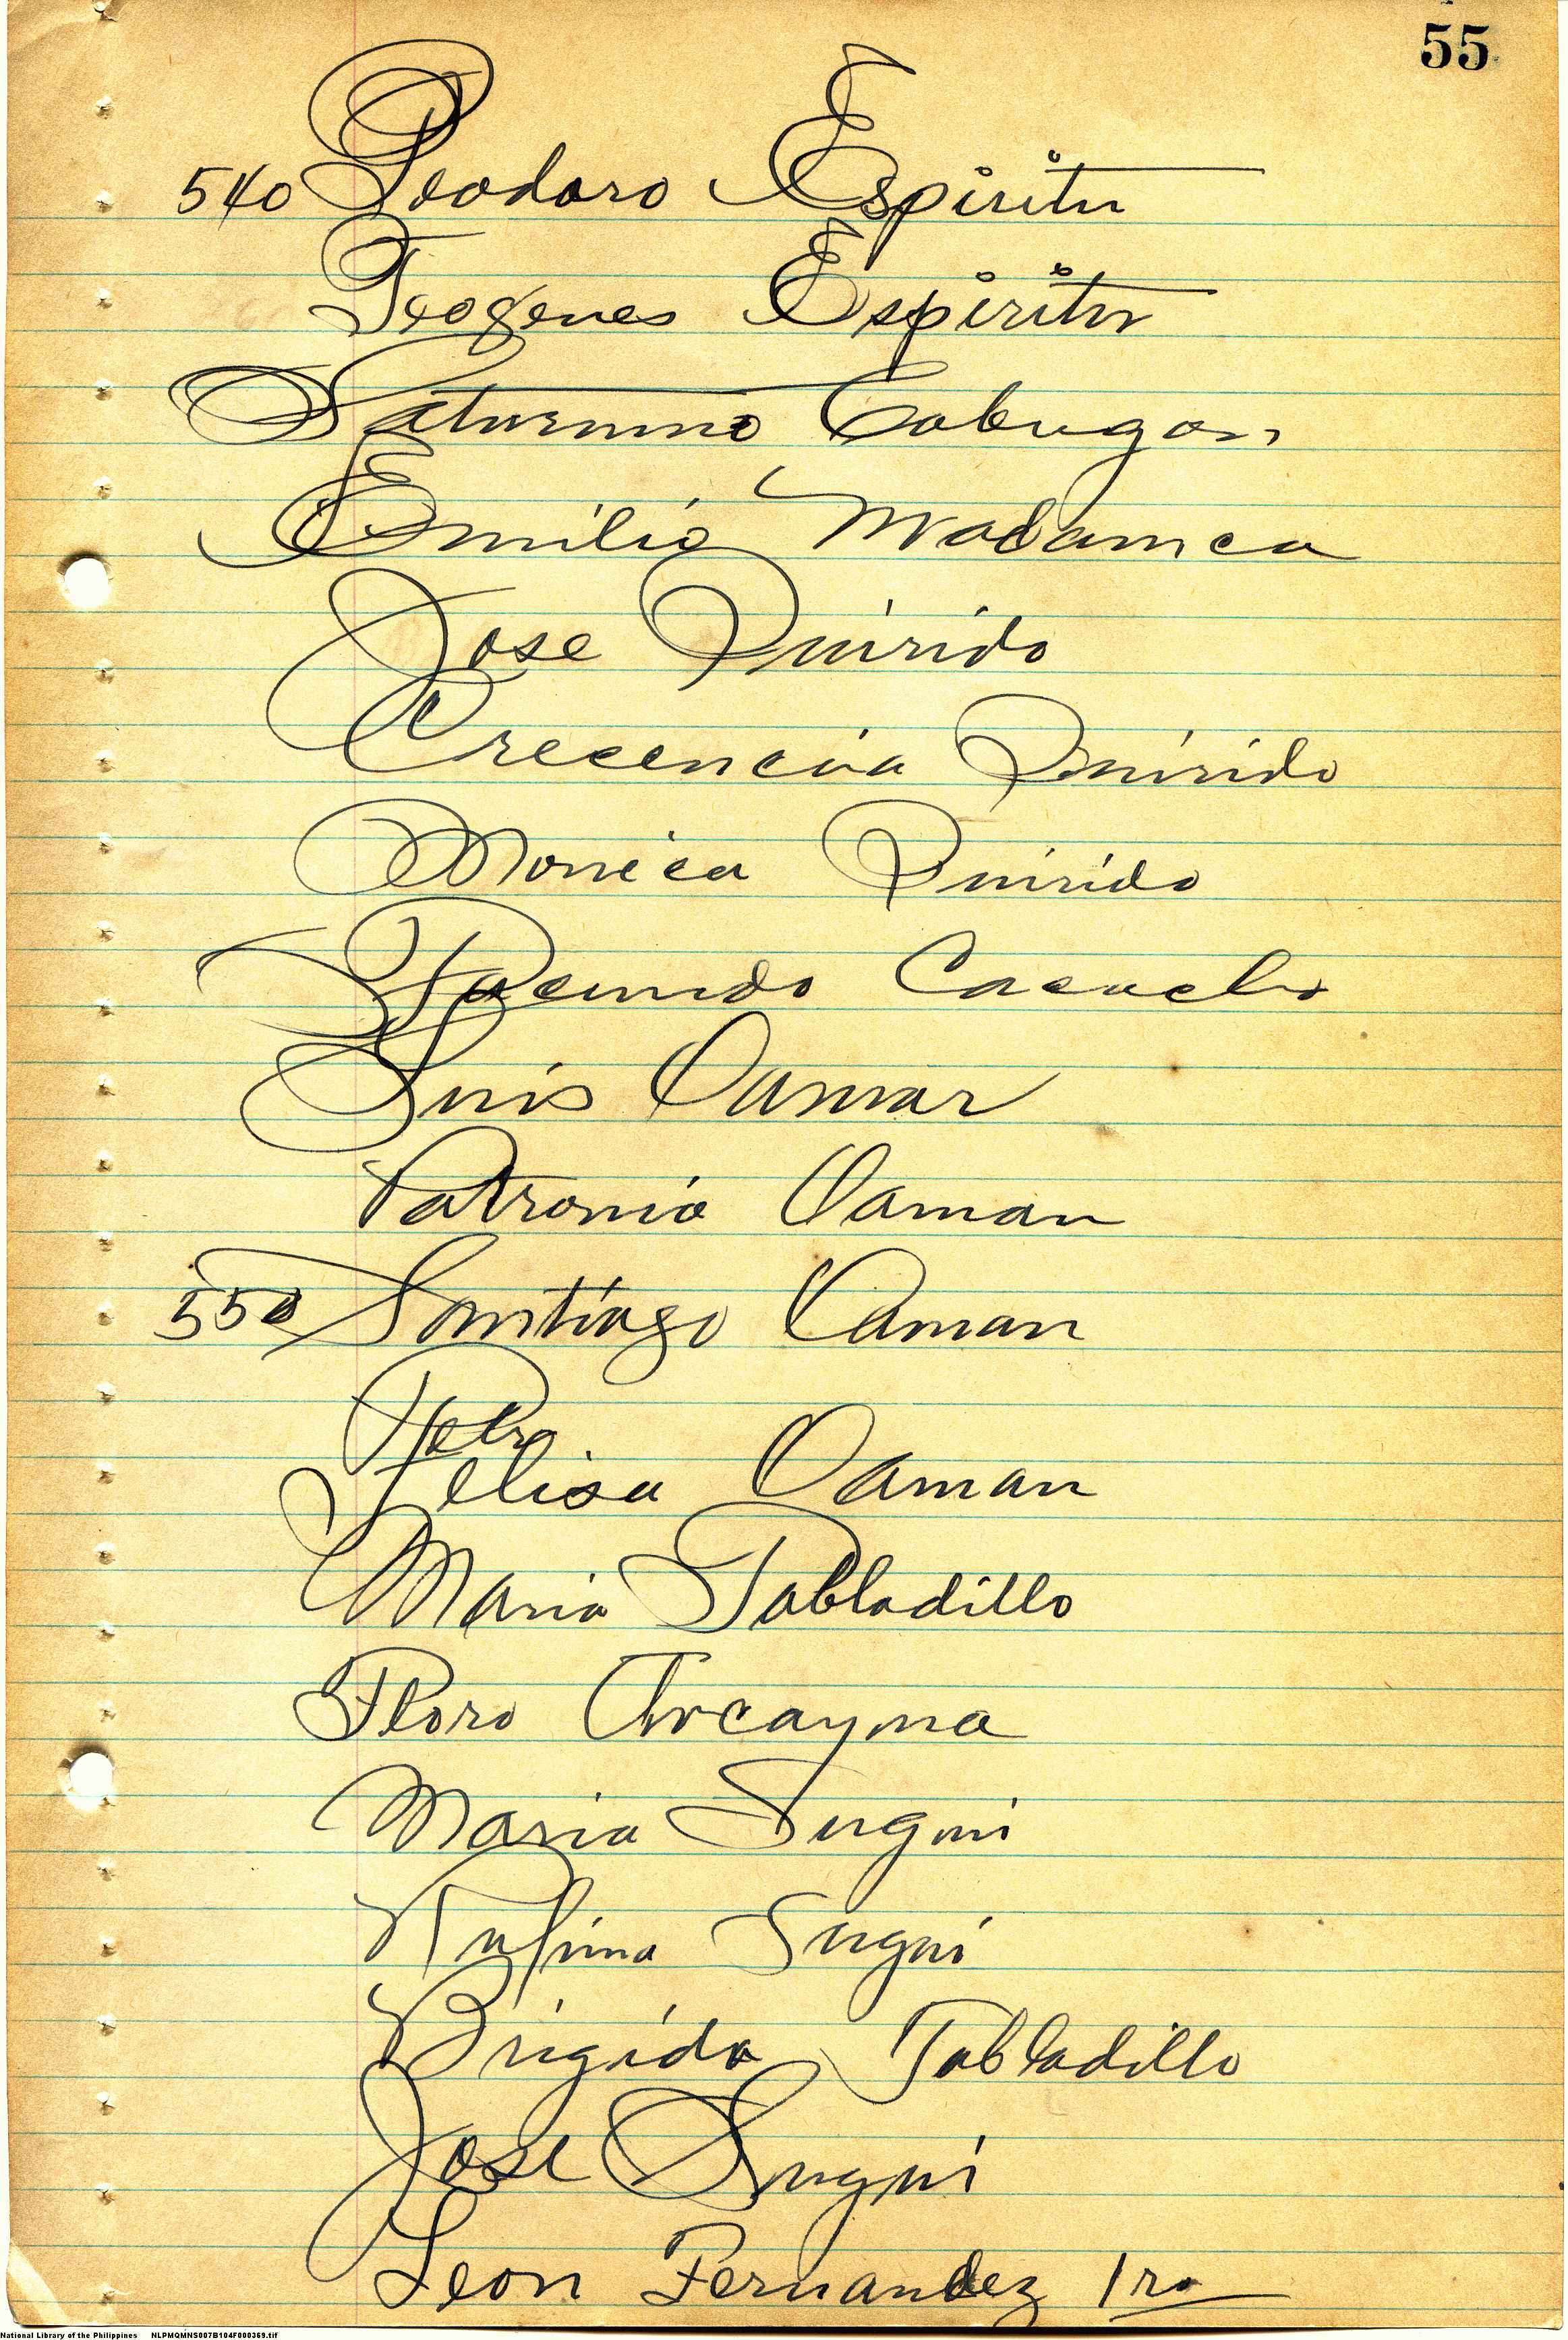 55
540 Teodoro Espiritu
Teogenes Espiritu
Saturnino Cabugon
Emilio Madamca
Jose Quirido
Crecencia Quirido
Monica Quirido
Facundo
Luis Oaman
Patronia Oaman
550 Santiago Oaman
Felisa Oaman
Maria Tabladillo
Floro Arcayma
Maria Sugui
Rufina Sugui
Brigida Tabladillo
Jose Sugui
Leon Fernandez 1ro
National Library of the Philippines NLPMQMNS007B104F000369.tif